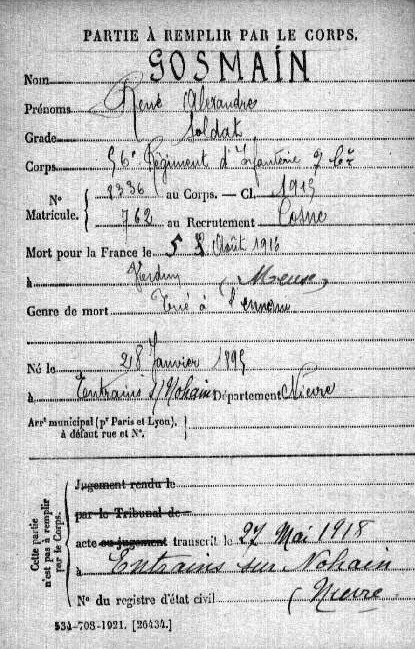 PARTIE À REMPLIR PAR LE CORPS.
Nom GOSMAIN
Prénoms René Alexandre
Grade Soldat
Corps 56e Régiment d'Infanterie
N° Matricule. { 2336 au Corps. — Cl. 1915
762 au Recrutement Cosne
Mort pour la France le 5 8 Août 1916
à Verdun (Meuse)
Genre de mort Tué à l'ennemi
Né le 28 Janvier 1895
à Entrains s/Nohain Département Nièvre
Arrt municipal (pr Paris et Lyon), à défaut rue et N°. }
Cette partie n'est pas à remplir par le Corps.
Jugement rendu le
par le Tribunal de
acte ou jugement transcrit le 27 Mai 1918
à Entrains sur Nohain
N° du registre d'état civil (Nièvre
534-708-1921. [26434.]